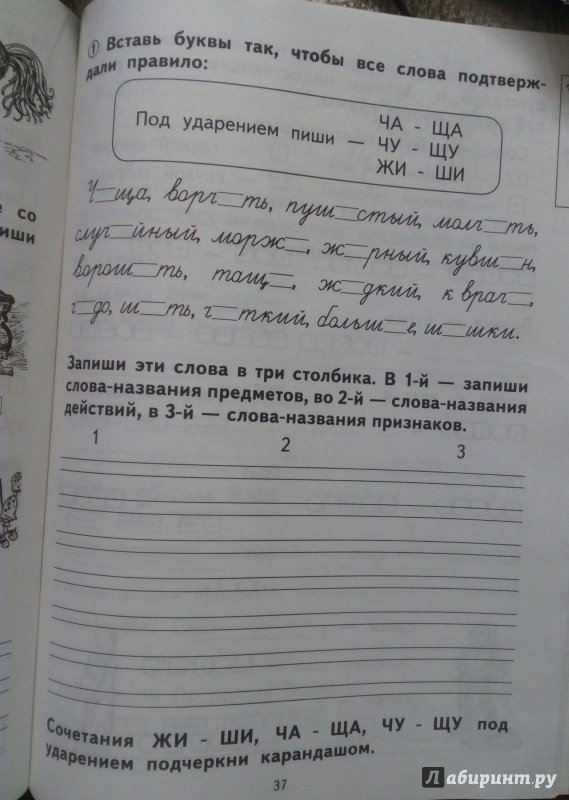 ① Вставь буквы так, чтобы все слова подтверж-
дали правило:
Под ударением пиши —
ЧА - ЩА
ЧУ - ЩУ
ЖИ - ШИ
Ч_ща, ворч_ть, пуш_стый, молч_ть,
случ_йный, морж_, ж_рный, кувш_н,
ворош_ть, тащ_, ж_дкий, к врач_,
ч_до, ш_ть, ч_ткий, больш_е, ш_шки.
Запиши эти слова в три столбика. В 1-й — запиши
слова-названия предметов, во 2-й — слова-названия
действий, в 3-й — слова-названия признаков.
1 2 3
Сочетания ЖИ - ШИ, ЧА - ЩА, ЧУ - ЩУ под
ударением подчеркни карандашом.
37
е со
пиши
Лабиринт.ру